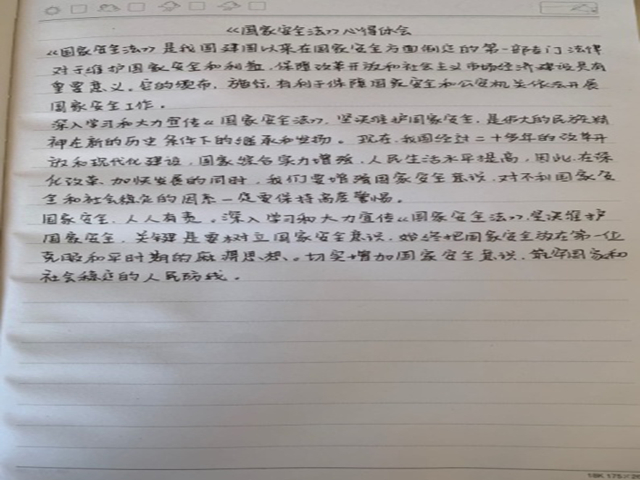 《国家安全法》心得体会
《国家安全法》是我国建国以来在国家安全方面制定的第一部专门法律
对于维护国家安全和利益，保障改革开放和社会主义市场经济建设具有
重要意义。它的颁布，施行，有利于保障国家安全和公安机关依法开展
国家安全工作。
深入学习和大力宣传《国家安全法》，坚决维护国家安全，是伟大的民族精
神在新的历史条件下的继承和发扬。现在，我国经过二十多年的改革开
放和现代化建设，国家综合实力增强，人民生活水平提高，因此，在深
化改革、加快发展的同时，我们要增强国家安全意识，对不利国家安
全和社会稳定的因素一定要保持高度警惕。
国家安全，人人有责。深入学习和大力宣传《国家安全法》，坚决维护
国家安全，关键是要树立国家安全意识，始终把国家安全放在第一位
克服和平时期的麻痹思想、切实增加国家安全意识，筑牢国家和
社会稳定的人民防线。